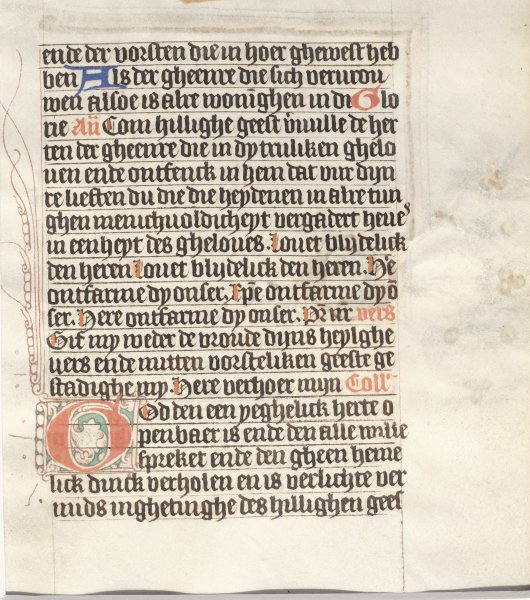 ende der vorsten die in hoer ghewest heb
ben Als der gheenre die sich vervrou
wen Alsoe is alre woninghen in di Glo
rie Añ Com hillighe geest vnulle de her
ten der gheenre die in dy truliken ghelo
uen ende ontfenck in hem dat vur dijn
re liefte du die die heydenen in alre tun
ghen menichuoldicheyt vergadert heues
in eenheyt des gheloues. Louet blydelick
den heren Louet blydelick den heren. Hre
ontfarme dy onser. Xpe ontfarme dy o
ser. Here ontfarme dy onser. Pr nr vers
Gif my weder de vroude dijns heylghe
uers ende mitten vorsteliken geeste ge
stadighe my. Here verhoer mijn Coll
God den een yeghelick herte o
penbaer is ende den alle wille
spreket ende den gheen heme
lick dinck verholen en is verlichte ver
mids inghetinghe des hillighen gees